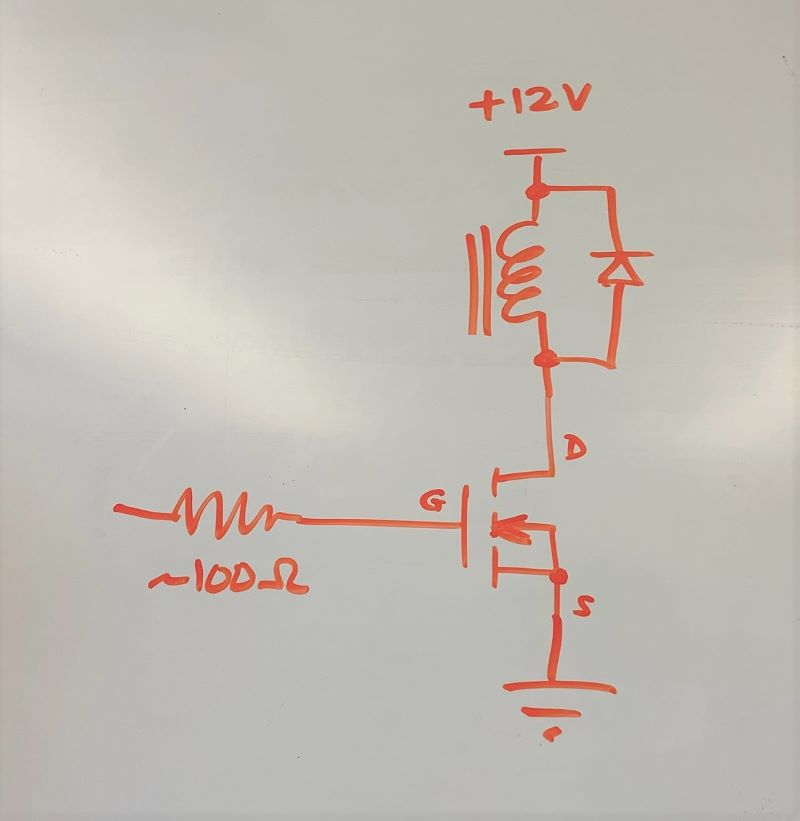 +12V
D
G
~100Ω
S